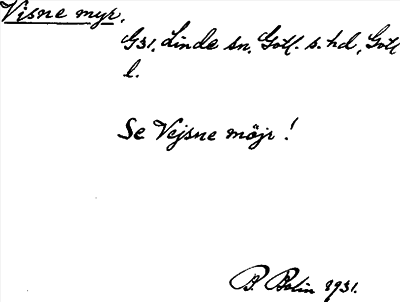 Visne myr.
G31. Linde sn. Gotl. s. hd, Gotl
l.
Se Vejsne möjr!
B. Bolin 1931.